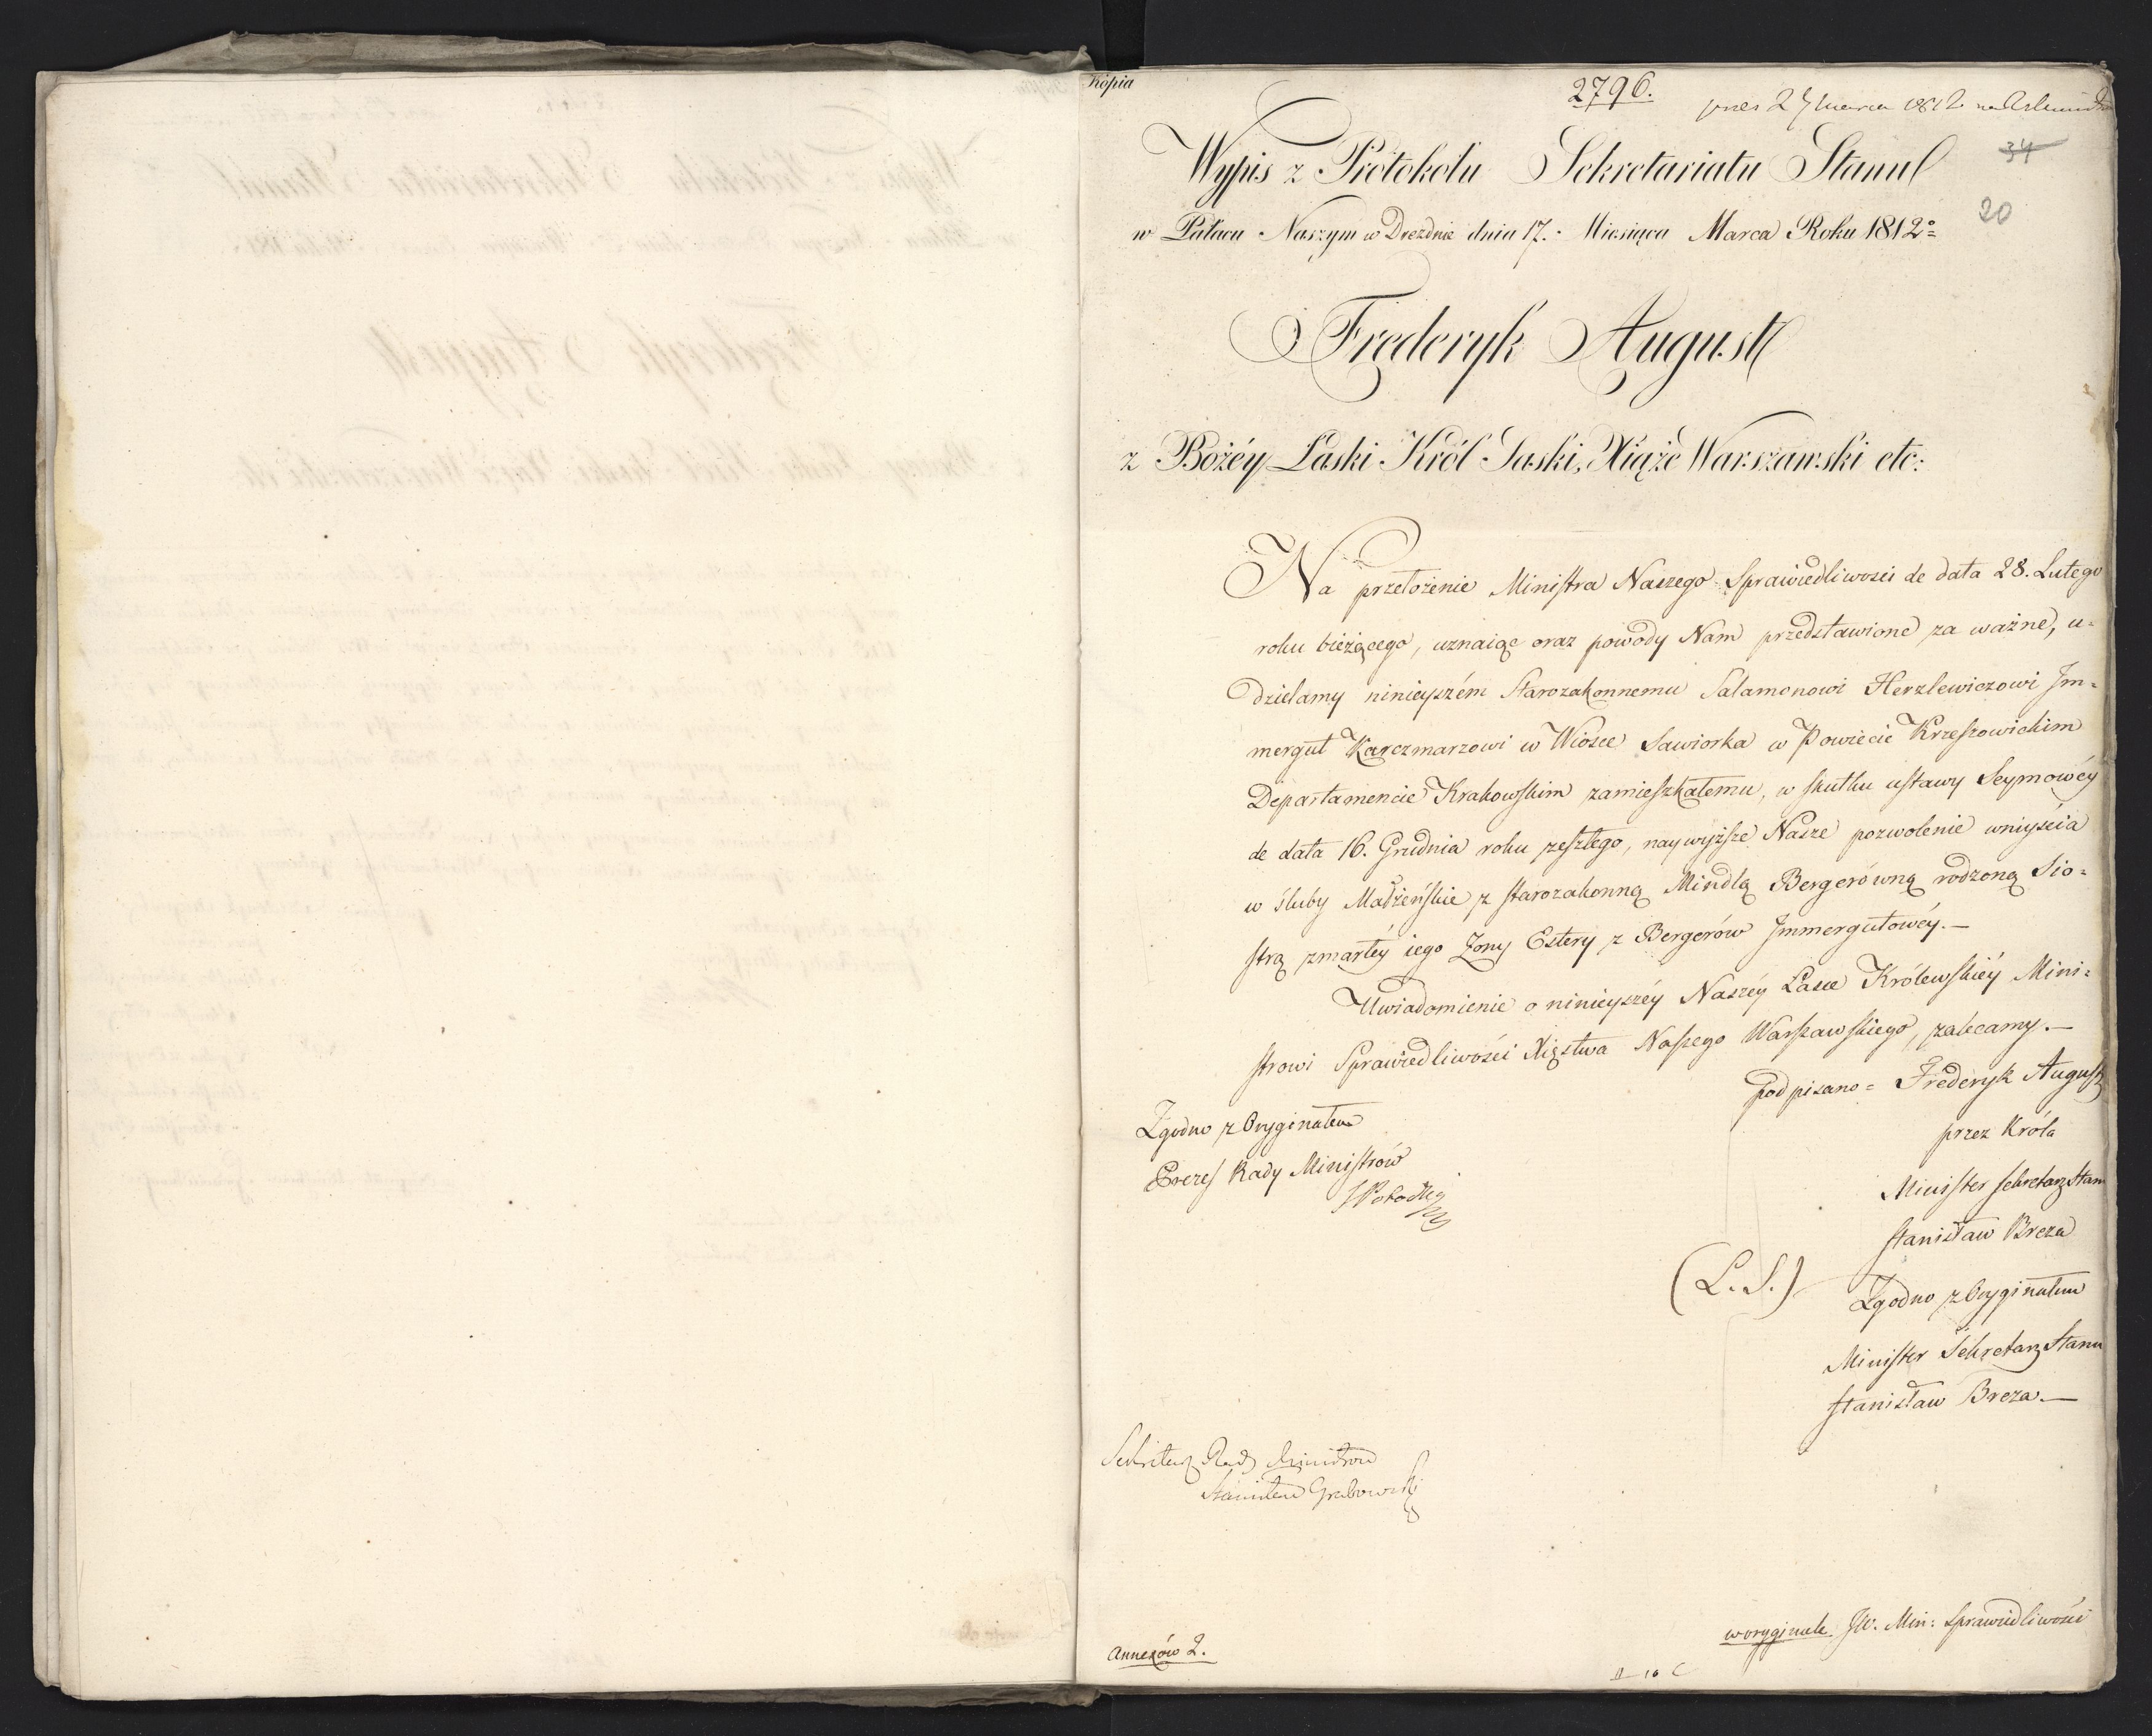 Kopia
2796.
34
20
Wypis z Protokołu Sekretariatu Stanu
w Pałacu Naszym w Dreźnie dnia 17. Miesiąca Marca Roku 1812o
Frederyk August
z Bożéy Łaski Król Saski, Xiąże Warszawski etc:
Na przełożenie Ministra Naszego Sprawiedliwosci de data 28. Lutego
roku bieżącego, uznaiąc oraz powody Nam przedstawione za ważne, u-
dzielamy ninieyszém Starozakonnemu Salamonowi Herzlewiczowi Im-
mergut Karczmarzowi w Wiosce Sawiorka w Powiecie Krzeszowickim
Departamencie Krakowskim zamieszkałemu, w skutku ustawy Seymowéy
de data 16. Grudnia roku zeszłego, naywyższe Nasze pozwolenie wniyścia
w śluby Madżeńskie z starozakonną Mindlą Bergerówną rodzoną Sio-
strą zmarłéy iego Żony Estery z Bergerów Immergutowéy.—
Uwiadomienie o ninieyszéy Naszéy Łasce Królewskiéy Mini-
strowi Sprawiedliwości Xięstwa Naszego Warszawskiego, zalecamy.—
podpisano = Frederyk August
przez Króla
Minister Sekretarz Stanu
Stanisław Breza
(L.S.)
Zgodno z Oryginałem
Minister Sekretarz Stanu
Stanisław Breza.—
Zgodno z Oryginałem
Prezes Rady Ministrów
SPotocki
Sekretarz Rady Ministrów
Stanisław Grabowski
Annexów 2.
w oryginale JW. Min: Sprawiedliwości